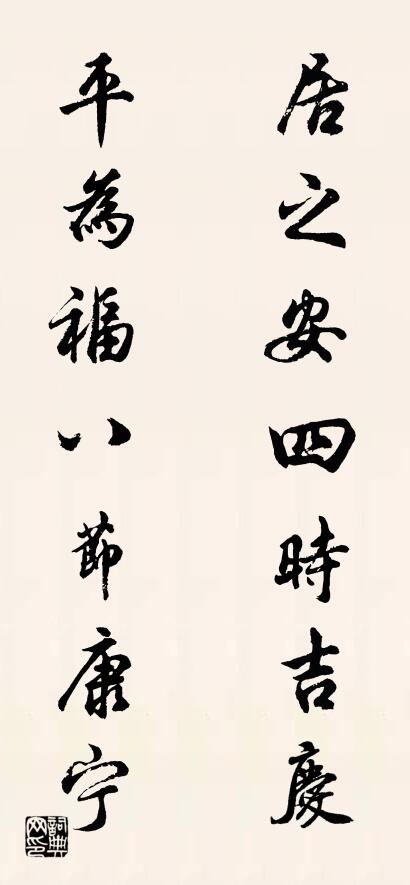 居之安四時吉慶
平為福八節康宁
詞典网印